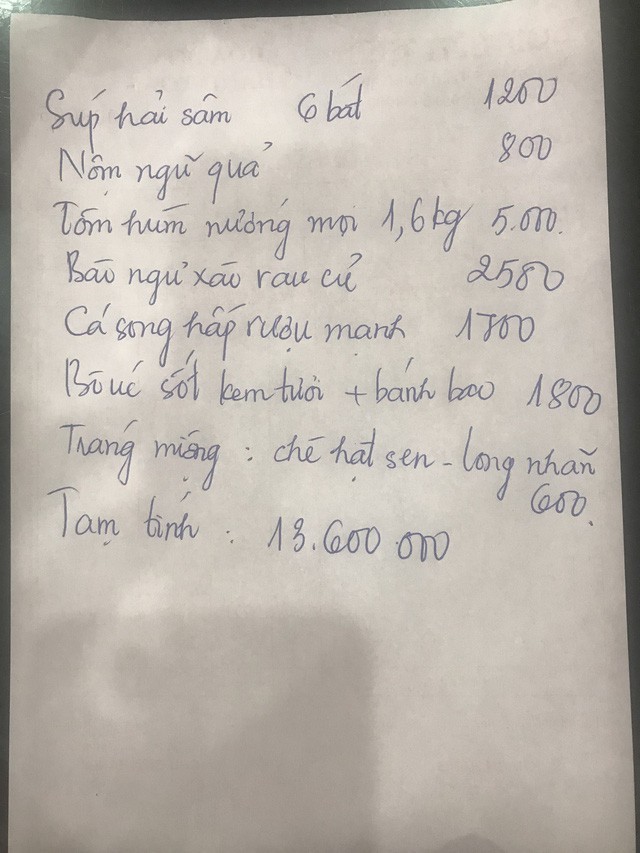 Súp hải sâm 6 bát 1200
Nộm ngũ quả 800
Tôm hùm nướng mọi 1,6kg 5.000.
Bào ngư xào rau củ 2580
Cá song hấp rượu mạnh 1700
Bò úc sốt kem tươi + bánh bao 1800
Tráng miệng : chè hạt sen - long nhãn
600.
Tạm tính : 13.600.000